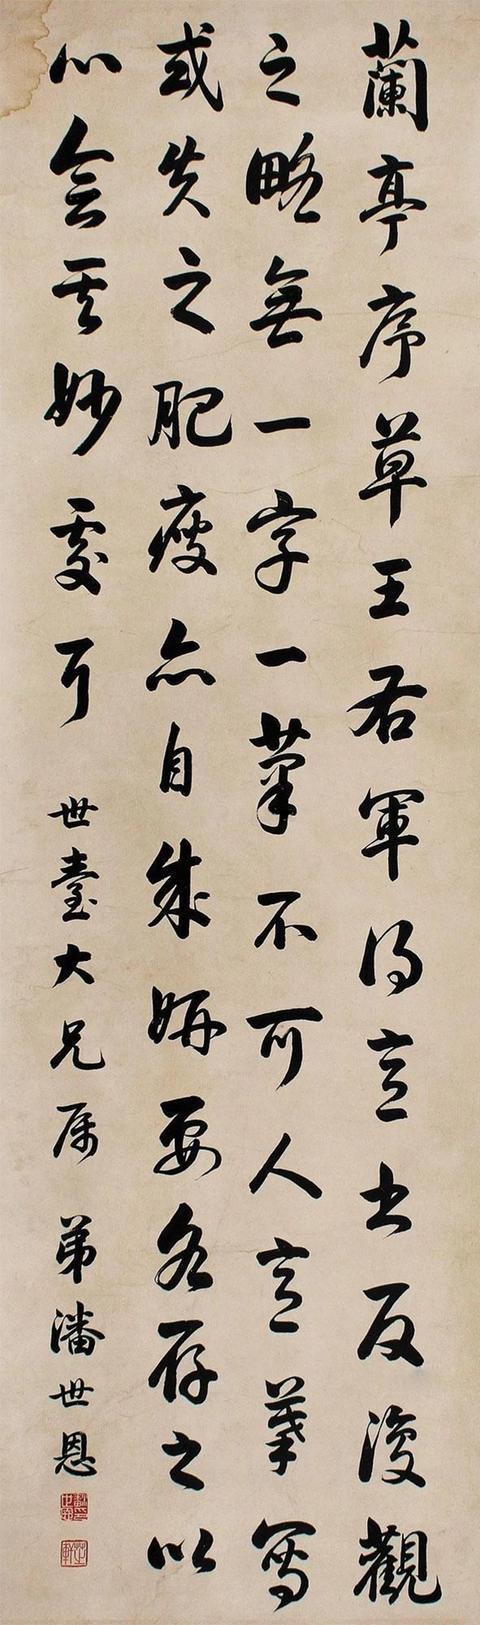 蘭亭序草王右軍得意書反復觀
之略無一字一筆不可人意摹寫
或失之肥瘦亦自成妍要各存之以
心會其妙處耳
世臺大兄屬 弟潘世恩